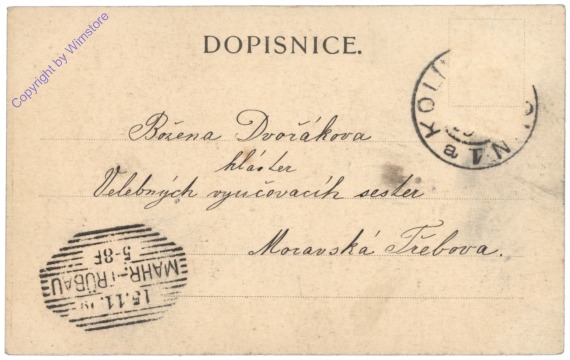 Copyright by Wimstore
DOPISNICE.
Božena Dvořákova
klášter
Velebných vyučovacíh sester
Moravská Třebova.
MÄHR.-TRÜBAU
5-8F
15.11.
KOLÍN 1
a